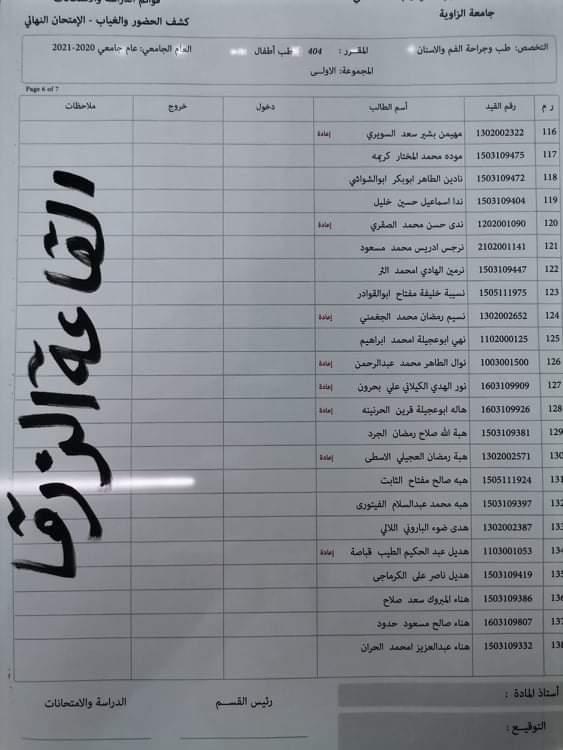 قوائم الدراسة والامتحانات
جامعة الزاوية
كشف الحضور والغياب - الإمتحان النهائي
التخصص: طب وجراحة الفم والاسنان المقـــرر : 404 طب أطفال العام الجامعي: عام جامعي 2020-2021
المجموعة: الاولى
Page 6 of 7
ر م رقم القيد أسم الطالب دخول خروج ملاحظات
116 1302002322 مهيمن بشير سعد السويري إعادة
117 1503109475 موده محمد المختار كريمه
118 1503109472 نادين الطاهر ابوبكر ابوالشواشي
119 1503109404 ندا اسماعيل حسين خليل
120 1202001090 ندى حسن محمد الصقري إعادة
121 2102001141 نرجس ادريس محمد مسعود
122 1503109447 نرمين الهادي امحمد الثر
123 1505111975 نسيبة خليفة مفتاح ابوالقوادر
124 1302002652 نسيم رمضان محمد الجغمني إعادة
125 1102000125 نهي ابوعجيلة امحمد ابراهيم
126 1003001500 نوال الطاهر محمد عبدالرحمن إعادة
127 1603109909 نور الهدي الكيلاني علي بحرون إعادة
128 1603109926 هاله ابوعجيلة قرين الحرنينه إعادة
129 1503109381 هبة الله صلاح رمضان الجرد
130 1302002571 هبة رمضان العجيلي الاسطى إعادة
131 1505111924 هبه صالح مفتاح الثابت
132 1503109397 هبه محمد عبدالسلام الفيتورى
133 1302002387 هدى ضوء الباروني اللالي
134 1103001053 هديل عبد الحكيم الطيب قباصة إعادة
135 1503109419 هديل ناصر على الكرماجى
136 1503109386 هناء المبروك سعد صلاح
137 1603109807 هناء صالح مسعود حدود
138 1503109332 هناء عبدالعزيز امحمد الحران
القاعة الزرقا
أستاذ المادة :
رئيس القســم
الدراسة والامتحانات
التوقيــع :